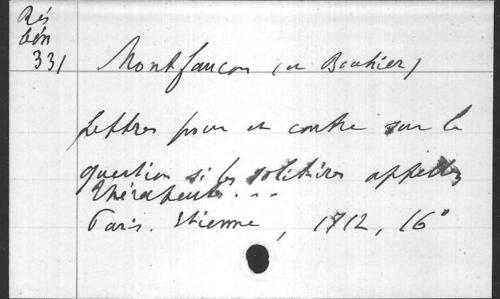 Rés
bén
331
Montfaucon (et Bouhier)
Lettres pour et contre sur la
question si les solitaires appellés
Thérapeutes...
Paris. Etienne, 1712, 16°